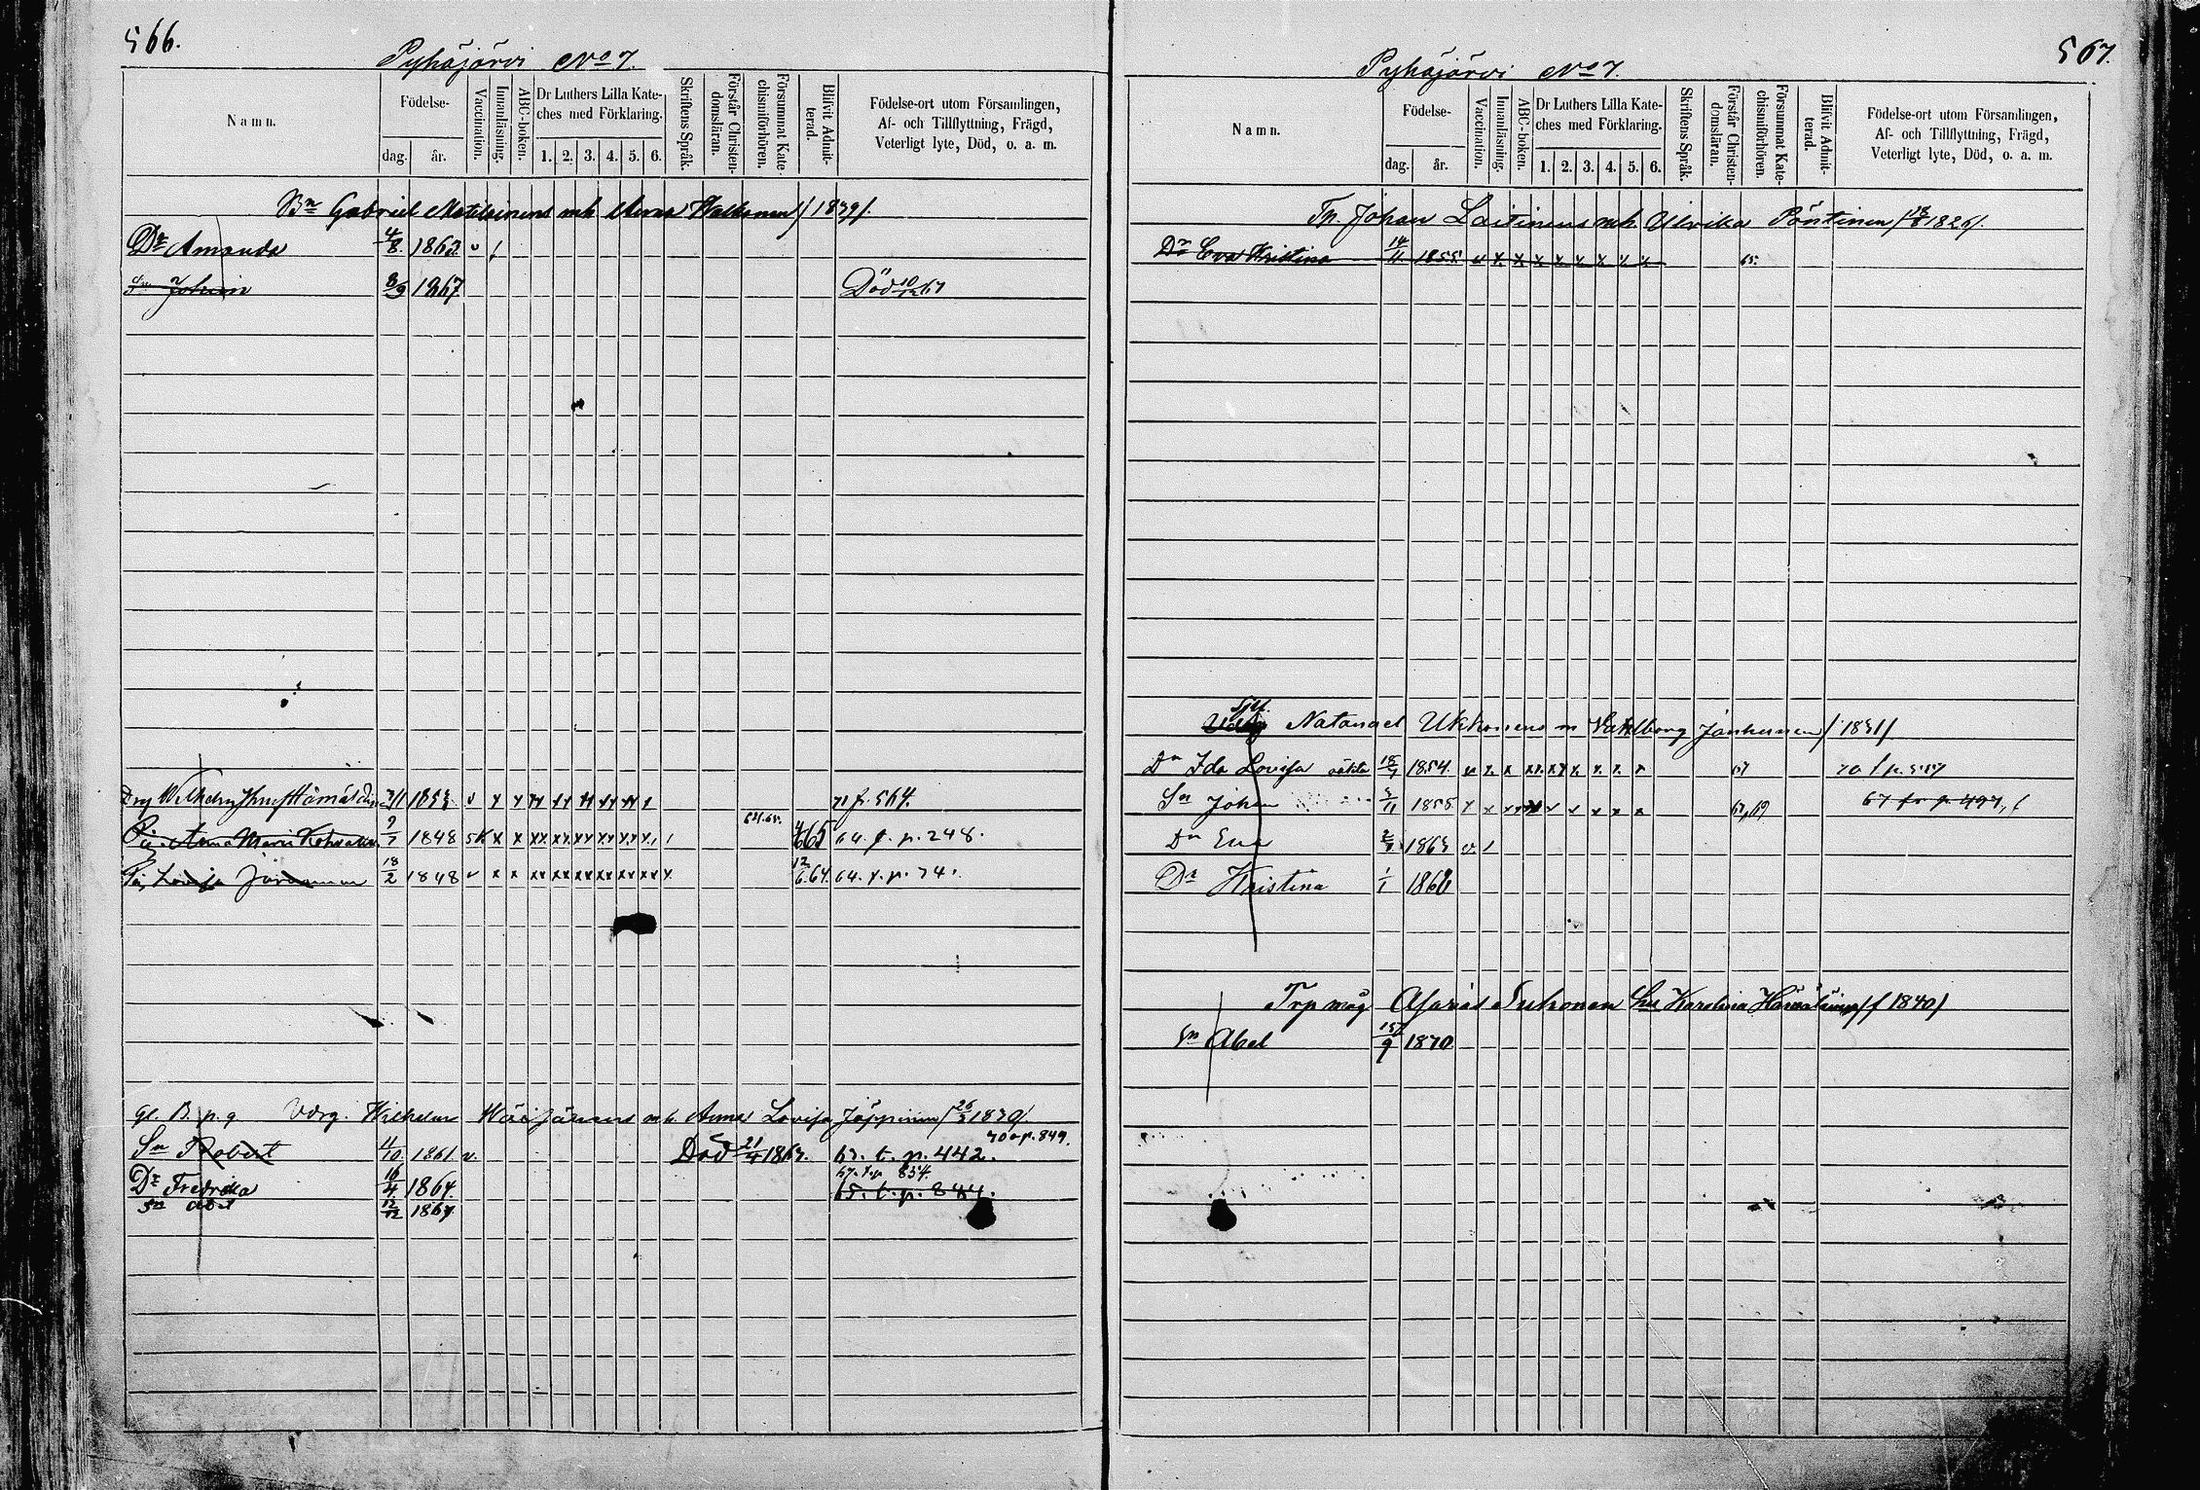 566.
Pyhäjärvi No 7.
Namn.
Födelse-
dag.
år.
Vaccination.
Innanläsning.
ABC-boken.
Dr Luthers Lilla Kate-
ches med Förklaring.
1. 2. 3. 4. 5. 6.
Skriftens Språk.
Förstår Christen-
domsläran.
Försummat Kate-
chismiförhören.
Blifvit Admit-
terad.
Födelse-ort utom Församlingen,
Af- och Tillflyttning, Frägd,
Veterligt lyte, Död, o. a. m.
Bn Gabriel Matilainens mh Anna Halkonen / 1839/.
Dr Amanda 4/8. 1863. v /
Sn Johan 8/9 1867 Död 10/12 67
Drg Wilhelm 1853. v x x f. 564.
Pig. Anna Maria 9/7 1848 x x 65 64. f. p. 248.
Pig. Lovisa 18/2 1848 v x x 12/6. 64. 64. f. p. 74.
Gl. B. p. 9 Vdrg. Wilhelm mh. Anna Lovisa Jäppinen / 26/3 1839/.
70 p. 849.
Sn Robert 4/10. 1861. v. Död 21/4 1863. 63. t. p. 442.
67. t. p. 854.
Dr Fredrika 16/4 1864. 65. t. p. 844.
Sn Abel 12/12 1867
567.
Pyhäjärvi No 7.
Namn.
Födelse-
dag.
år.
Vaccination.
Innanläsning.
ABC-boken.
Dr Luthers Lilla Kate-
ches med Förklaring.
1. 2. 3. 4. 5. 6.
Skriftens Språk.
Förstår Christen-
domsläran.
Försummat Kate-
chismiförhören.
Blifvit Admit-
terad.
Födelse-ort utom Församlingen,
Af- och Tillflyttning, Frägd,
Veterligt lyte, Död, o. a. m.
Tp. Johan Laitinens mh Ulrika Pöntinen / 1826/.
Dr Eva Kristina 14/11 1855. v x x x x x x x x 65.
Natanael Ukkonens m Valborg Janhunen / 1831/
Dr Ida Lovisa 18/7 1854. v x x x x x x x x 67
Sn Johan 3/11 1858 x x x x x x x x 67, 69 67 fr p 497,
Dr Eva 1863 v /
Dr Kristina 1/1 1866
Trp måg Asarias Suhonen hu Karolina Hämäläinen / 1840/
Sn Abel 15/9 1870